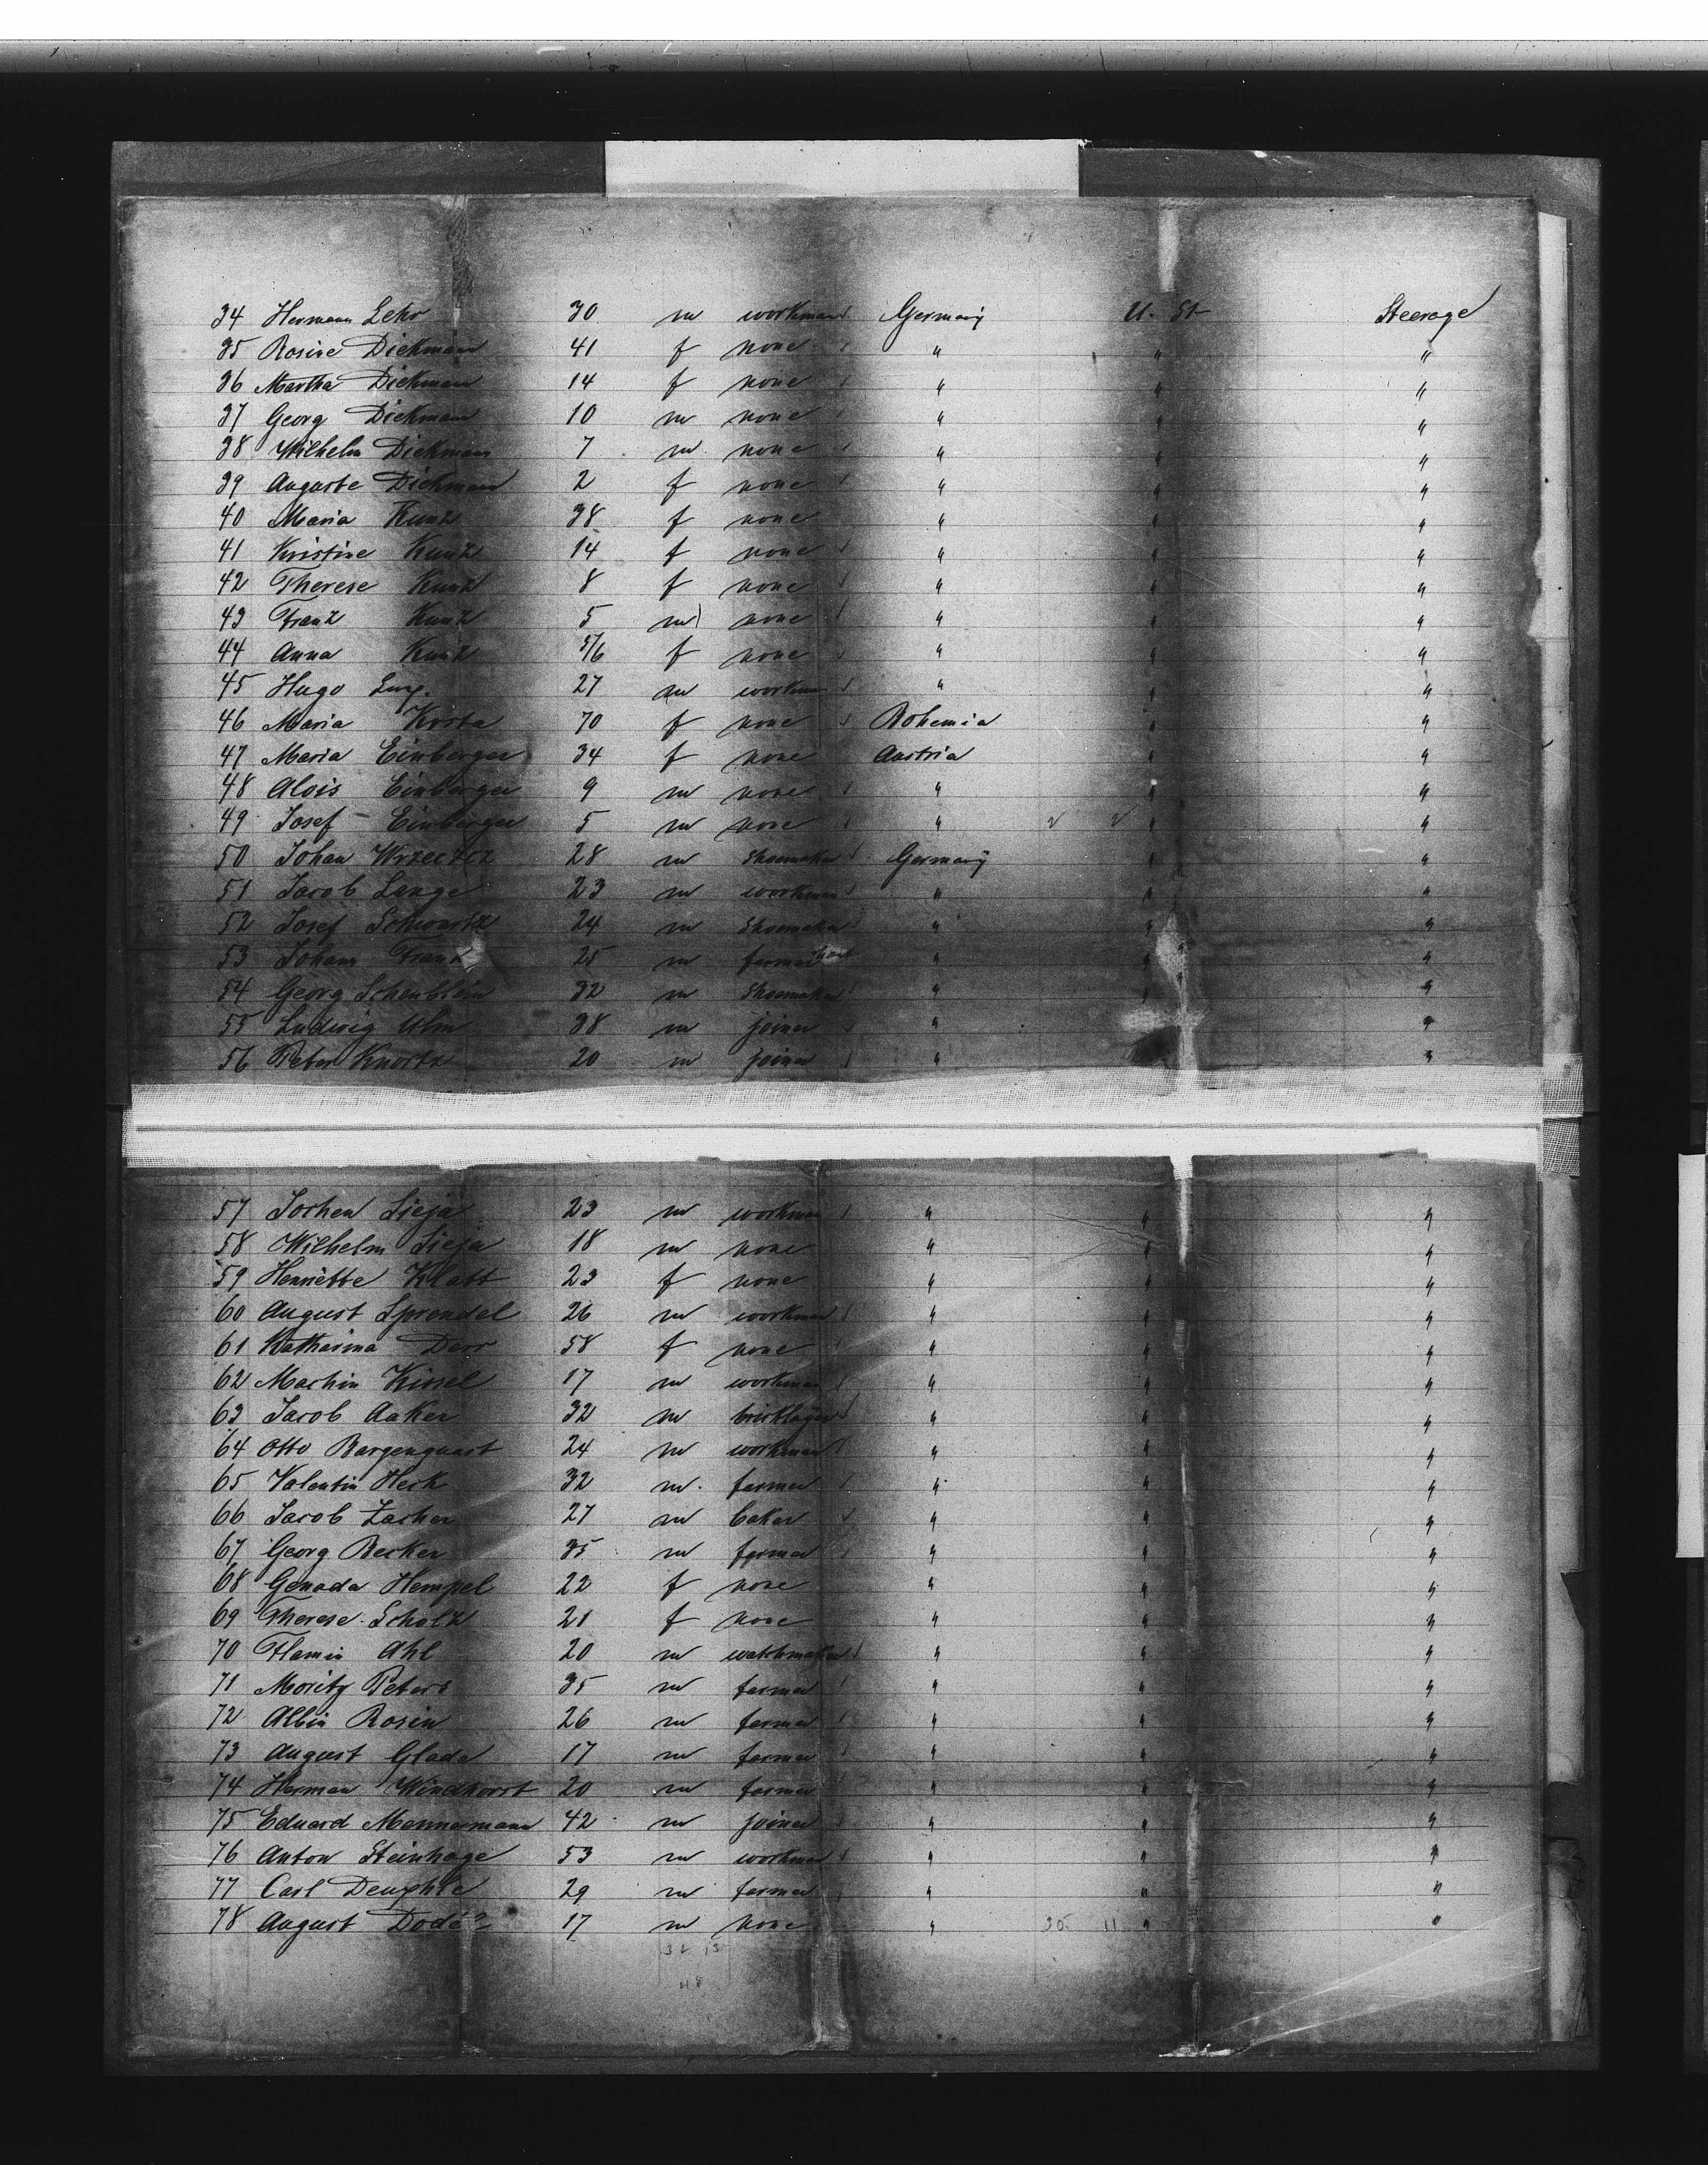 34 Hermann Lehr 30 m workman Germany U. St Steerage
35 Rosine Diekmann 41 f none " " "
36 Martha Diekmann 14 f none " " "
37 Georg Diekmann 10 m none " " "
38 Wilhelm Diekmann 7 m none " " "
39 Auguste Diekmann 2 f none " " "
40 Maria Kunz 38 f none " " "
41 Kristine Kunz 14 f none " " "
42 Therese Kunz 8 f none " " "
43 Franz Kunz 5 m none " " "
44 Anna Kunz 5/6 f none " " "
45 Hugo 27 m workman " " "
46 Maria Korta 70 f none Bohemia " "
47 Maria Einberger 34 f none Austria " "
48 Alois Einberger 9 m none " " "
49 Josef Einberger 5 m none " 2 2 " "
50 Johan 28 m Shoemaker Germany " "
51 Jacob Lange 23 m workman " " "
52 Josef Schwartz 24 m Shoemaker " " "
53 Johann Franz 25 m farmer " " "
54 Georg Scheublein 32 m Shoemaker " " "
55 Ludwig Ulm 38 m joiner " "
56 Peter Knortz 20 m joiner " "
57 Jochen Sieja 23 m workman " " "
58 Wilhelm Sieja 18 m none " " "
59 Henriette Klatt 23 f none " " "
60 August Sprendel 26 m workman " " "
61 Katharina Darr 58 f none " " "
62 Machin Kissel 17 m workman " " "
63 Jacob Aaker 32 m bricklayer " " "
64 Otto Bargenquast 24 m workman " " "
65 Valentin Heck 32 m farmer " " "
66 Jacob Zacher 27 m baker " " "
67 Georg Becker 35 m farmer " " "
68 Genada Hempel 22 f none " " "
69 Therese Scholz 21 f none " " "
70 Ahl 20 m watchmaker " " "
71 Moritz Peters 35 m farmer " " "
72 Albin Rosin 26 m farmer " " "
73 August Glade 17 m farmer " " "
74 Herman Windhorst 20 m farmer " " "
75 Eduard Mannesmann 42 m joiner " " "
76 Anton Steinhage 53 m workman " " "
77 Carl Deuphle 29 m farmer " " "
78 August 17 m none " 35 11 " "
32 13
48